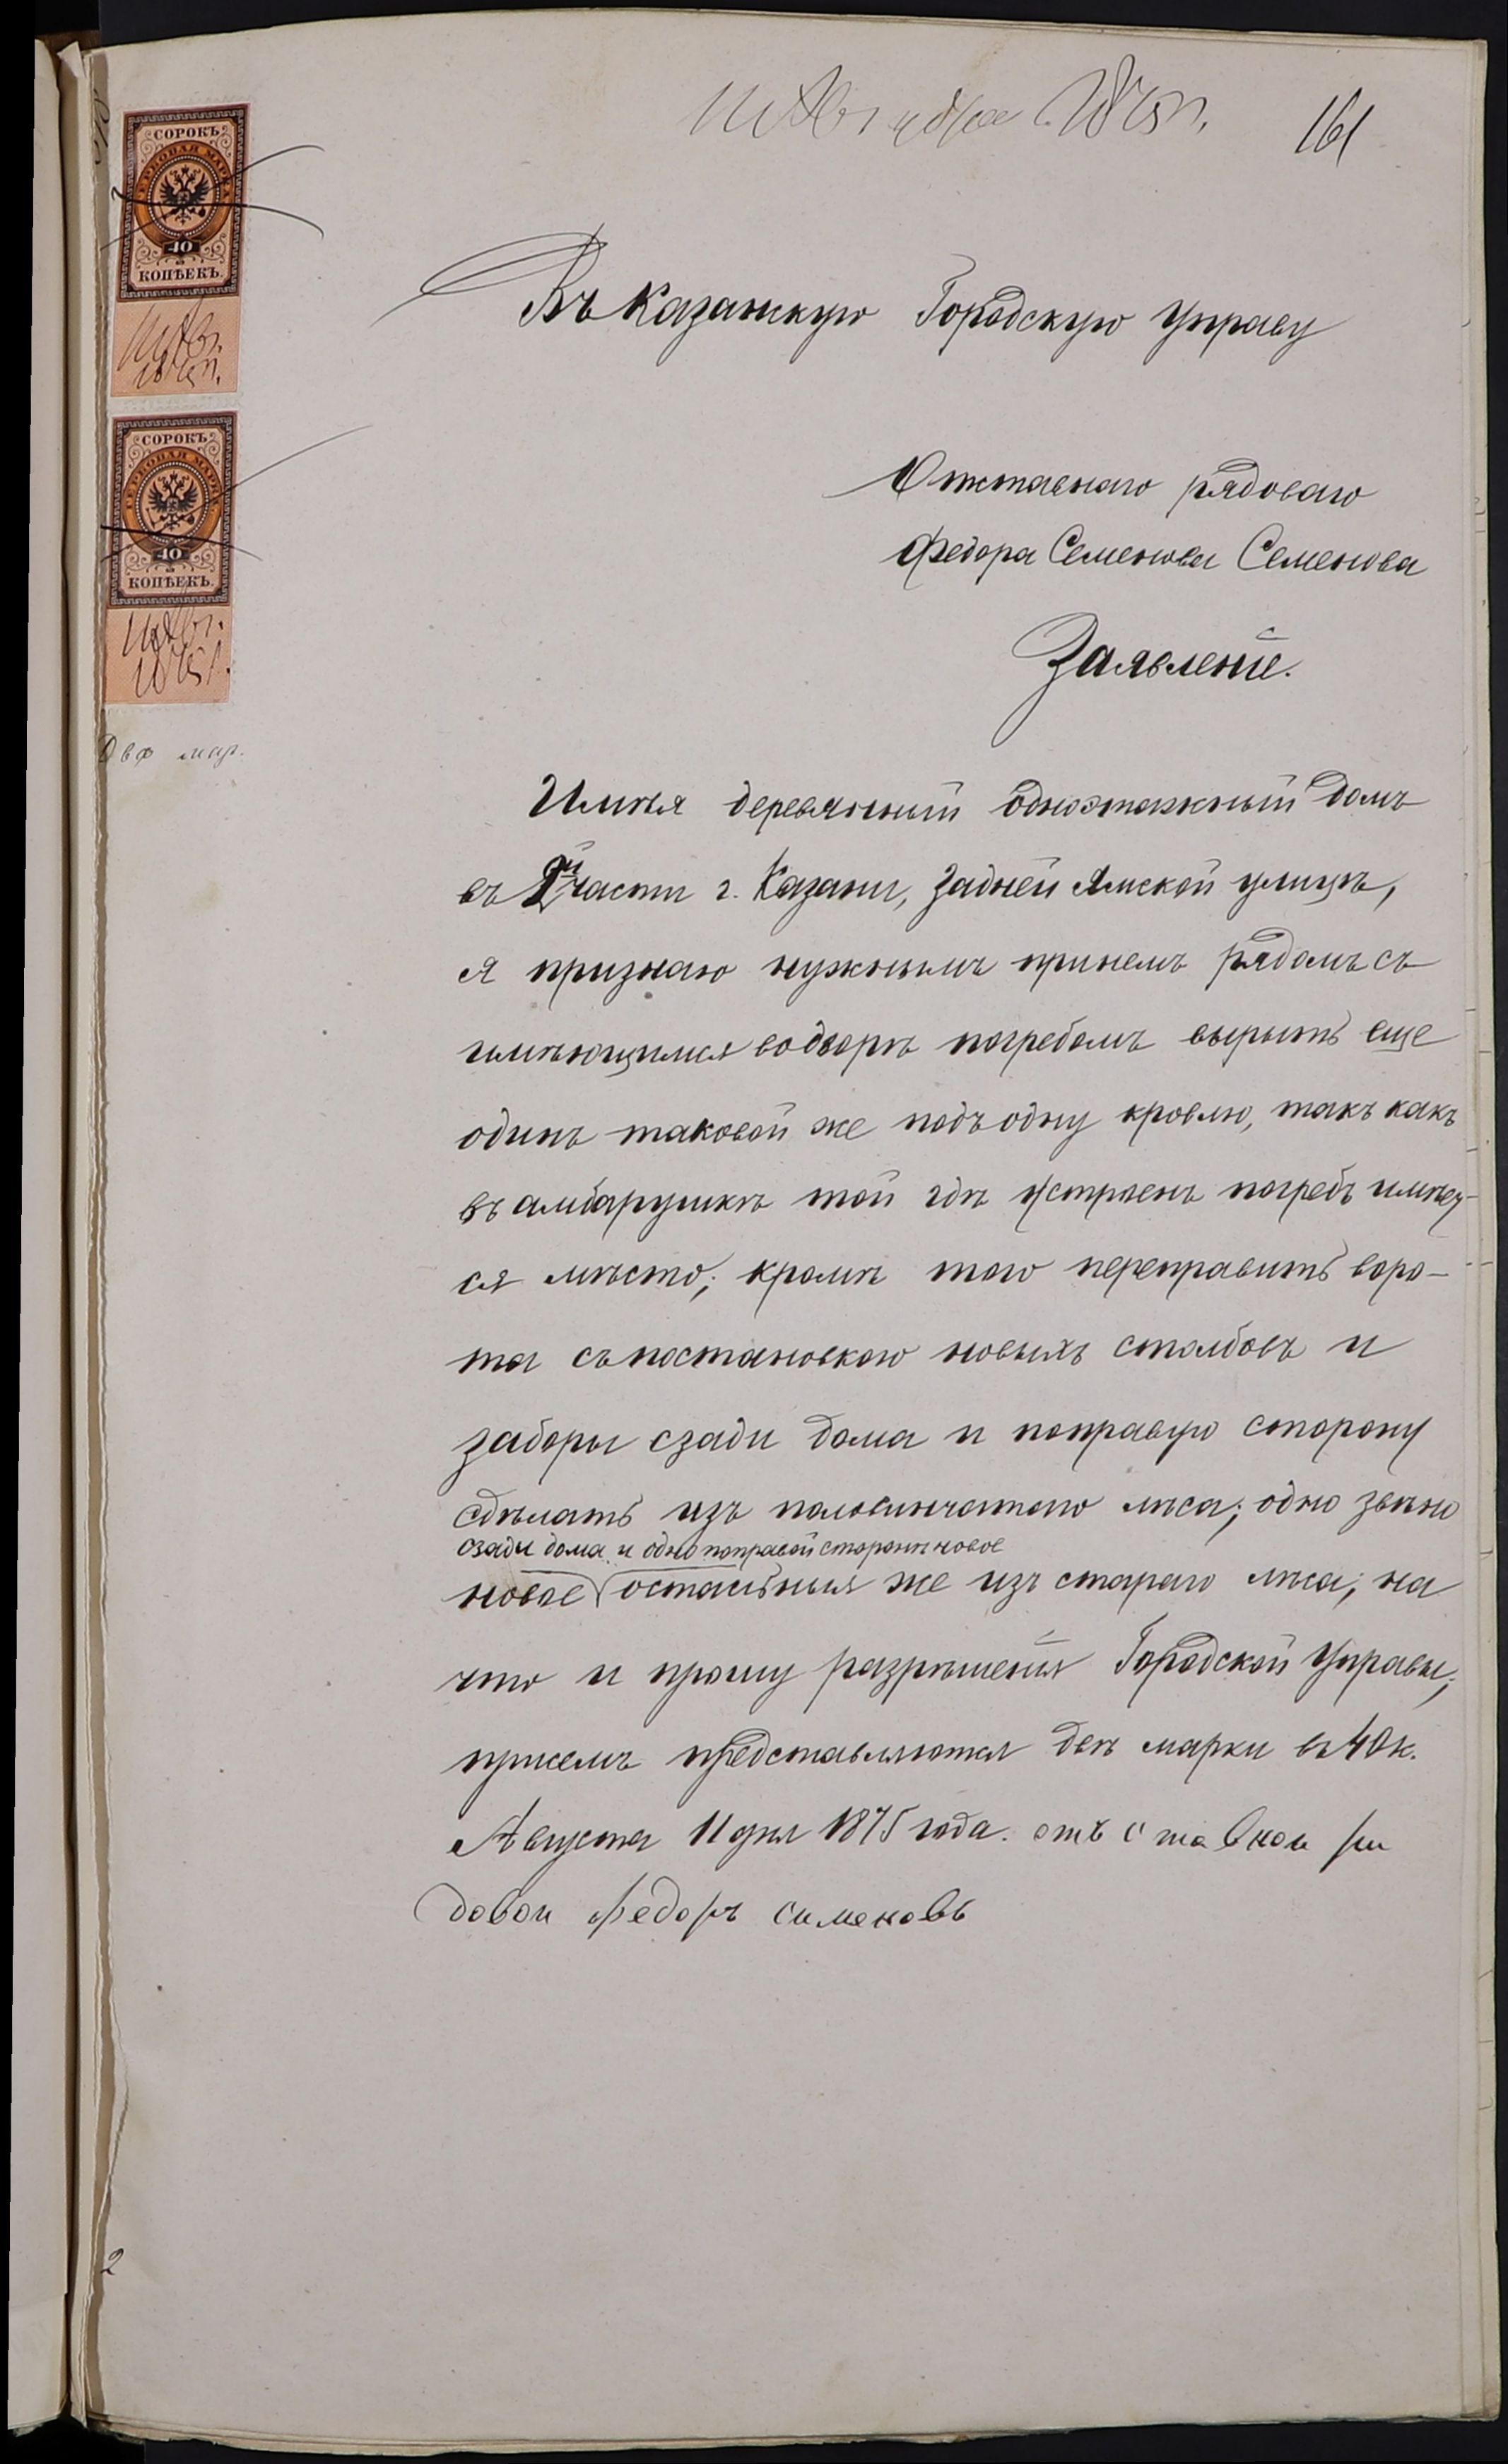 11 Авг 1875 г.
161
СОРОКЪ
ГЕРБОВАЯ МАРКА
40
КОПѢЕКЪ.
11 Авг.
1875 г.
СОРОКЪ
ГЕРБОВАЯ МАРКА
40
КОПѢЕКЪ.
11 Авг.
1875 г.
Двѣ мар.
Въ Казанскую Городскую Управу
Отставнаго рядоваго
Федора Семенова Семенова
Заявленіе.
Имѣя деревянный одноэтажный домъ
въ части г. Казани, Задней Ямской улицѣ,
я признаю нужнымъ при немъ рядомъ съ
имѣющимся во дворѣ погребомъ вырыть еще
одинъ таковой же подъ одну кровлю, такъ какъ
въ амбарушкѣ той гдѣ устроенъ погребъ имѣет-
ся мѣсто; кромѣ того переправить воро-
та съ постановкою новыхъ столбовъ и
заборы сзади дома и по правую сторону
сдѣлать изъ половинчатаго лѣса; одно звѣно
сзади дома и одно по правой сторонѣ новое
новое остальныя же изъ стараго лѣса; на
что и прошу разрѣшенія Городской Управы;
при семъ представляются двѣ марки въ 40 к.
Августа 11 дня 1875 года. отъставной ря
довой Федоръ Семеновъ
2